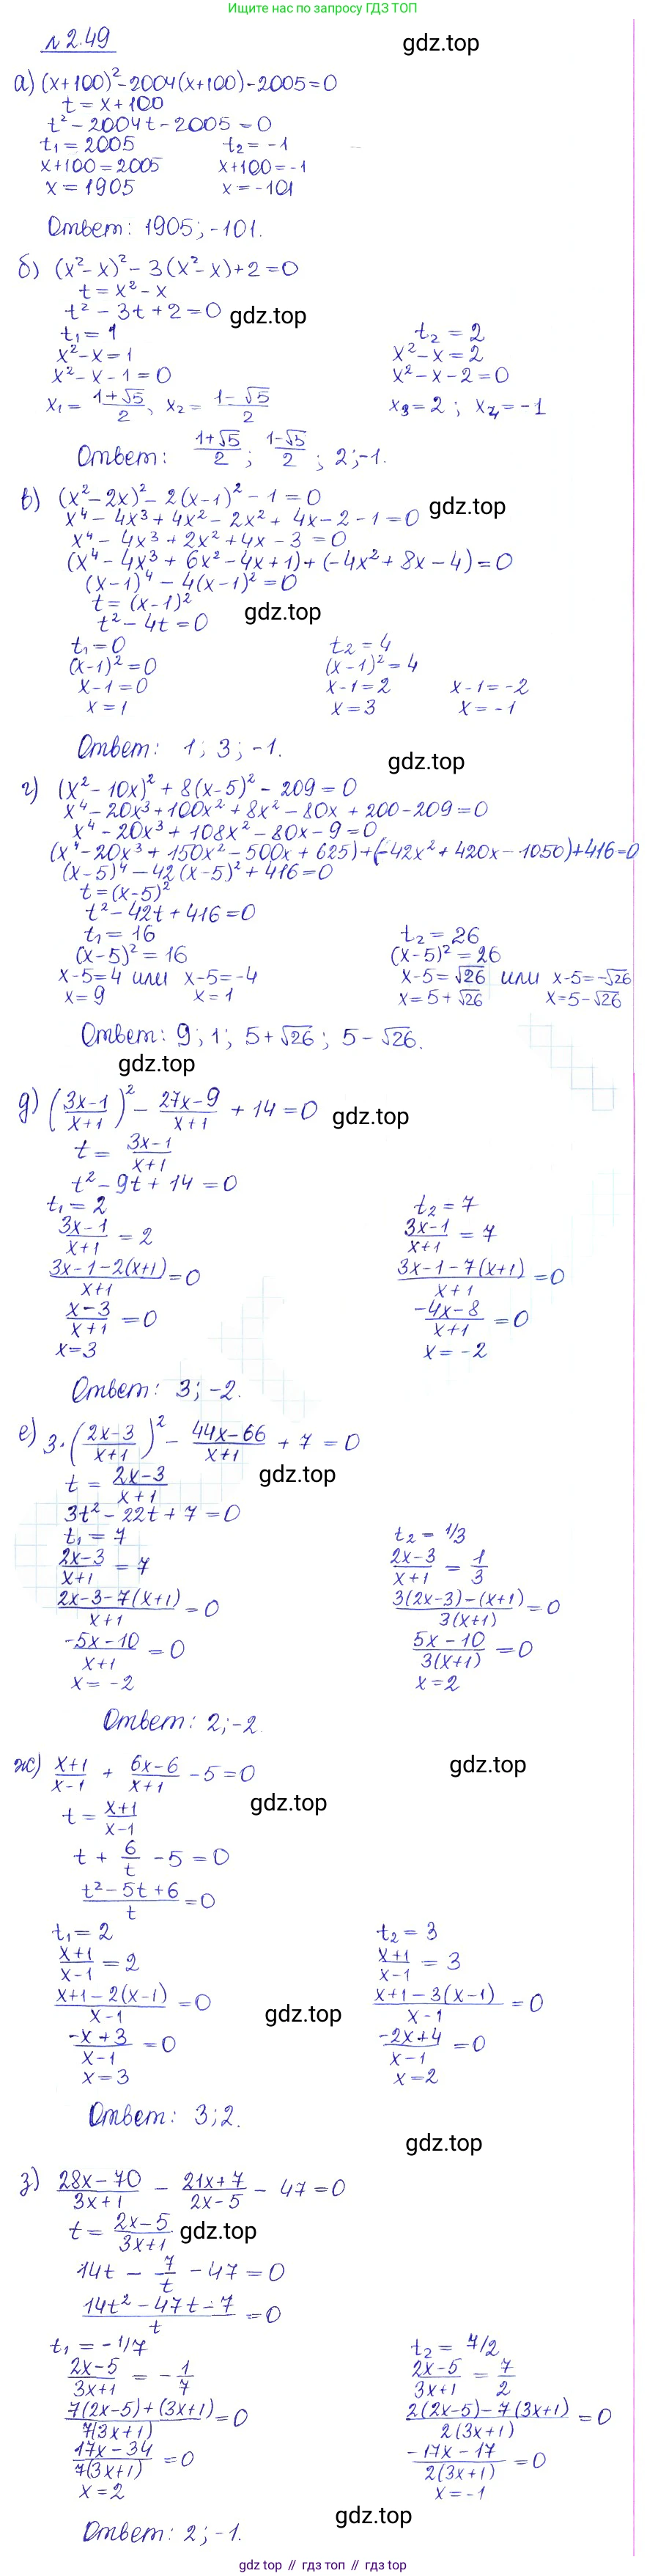 Ищите по запросу ГДЗ ТОП
№ 2.49
gdz.top
а) (x+100)² - 2004(x+100) - 2005 = 0
t = x + 100
t² - 2004t - 2005 = 0
t₁ = 2005    t₂ = -1
x+100 = 2005    x+100 = -1
x = 1905    x = -101
Ответ: 1905; -101.
б) (x² - x)² - 3(x² - x) + 2 = 0
t = x² - x
t² - 3t + 2 = 0
gdz.top
t₁ = 1    t₂ = 2
x² - x = 1    x² - x = 2
x² - x - 1 = 0    x² - x - 2 = 0
x₁ = (1+√5)/2, x₂ = (1-√5)/2    x₃ = 2; x₄ = -1
Ответ: (1+√5)/2; (1-√5)/2; 2; -1.
в) (x² - 2x)² - 2(x-1)² - 1 = 0
gdz.top
x⁴ - 4x³ + 4x² - 2x² + 4x - 2 - 1 = 0
x⁴ - 4x³ + 2x² + 4x - 3 = 0
(x⁴ - 4x³ + 6x² - 4x + 1) + (-4x² + 8x - 4) = 0
(x-1)⁴ - 4(x-1)² = 0
t = (x-1)²
gdz.top
t² - 4t = 0
t₁ = 0    t₂ = 4
(x-1)² = 0    (x-1)² = 4
x-1 = 0    x-1 = 2    x-1 = -2
x = 1    x = 3    x = -1
Ответ: 1; 3; -1.
gdz.top
г) (x² - 10x)² + 8(x-5)² - 209 = 0
x⁴ - 20x³ + 100x² + 8x² - 80x + 200 - 209 = 0
x⁴ - 20x³ + 108x² - 80x - 9 = 0
(x⁴ - 20x³ + 150x² - 500x + 625) + (-42x² + 420x - 1050) + 416 = 0
(x-5)⁴ - 42(x-5)² + 416 = 0
t = (x-5)²
t² - 42t + 416 = 0
t₁ = 16    t₂ = 26
(x-5)² = 16    (x-5)² = 26
x-5 = 4 или x-5 = -4    x-5 = √26 или x-5 = -√26
x = 9    x = 1    x = 5+√26    x = 5-√26
Ответ: 9; 1; 5+√26; 5-√26.
gdz.top
д) ((3x-1)/(x+1))² - (27x-9)/(x+1) + 14 = 0
gdz.top
t = (3x-1)/(x+1)
t² - 9t + 14 = 0
t₁ = 2    t₂ = 7
(3x-1)/(x+1) = 2    (3x-1)/(x+1) = 7
(3x-1-2(x+1))/(x+1) = 0    (3x-1-7(x+1))/(x+1) = 0
(x-3)/(x+1) = 0    (-4x-8)/(x+1) = 0
x = 3    x = -2
Ответ: 3; -2.
е) 3·((2x-3)/(x+1))² - (44x-66)/(x+1) + 7 = 0
gdz.top
t = (2x-3)/(x+1)
3t² - 22t + 7 = 0
t₁ = 7    t₂ = 1/3
(2x-3)/(x+1) = 7    (2x-3)/(x+1) = 1/3
(2x-3-7(x+1))/(x+1) = 0    (3(2x-3)-(x+1))/(3(x+1)) = 0
(-5x-10)/(x+1) = 0    (5x-10)/(3(x+1)) = 0
x = -2    x = 2
Ответ: 2; -2.
ж) (x+1)/(x-1) + (6x-6)/(x+1) - 5 = 0
gdz.top
t = (x+1)/(x-1)
gdz.top
t + 6/t - 5 = 0
(t² - 5t + 6)/t = 0
t₁ = 2    t₂ = 3
(x+1)/(x-1) = 2    (x+1)/(x-1) = 3
(x+1-2(x-1))/(x-1) = 0    (x+1-3(x-1))/(x-1) = 0
gdz.top
(-x+3)/(x-1) = 0    (-2x+4)/(x-1) = 0
x = 3    x = 2
Ответ: 3; 2.
gdz.top
з) (28x-70)/(3x+1) - (21x+7)/(2x-5) - 47 = 0
t = (2x-5)/(3x+1)
gdz.top
14t - 7/t - 47 = 0
(14t² - 47t - 7)/t = 0
t₁ = -1/7    t₂ = 7/2
(2x-5)/(3x+1) = -1/7    (2x-5)/(3x+1) = 7/2
(7(2x-5)+(3x+1))/(7(3x+1)) = 0    (2(2x-5)-7(3x+1))/(2(3x+1)) = 0
(17x-34)/(7(3x+1)) = 0    (-17x-17)/(2(3x+1)) = 0
x = 2    x = -1
gdz.top
Ответ: 2; -1.
gdz.top // гдз топ // gdz.top